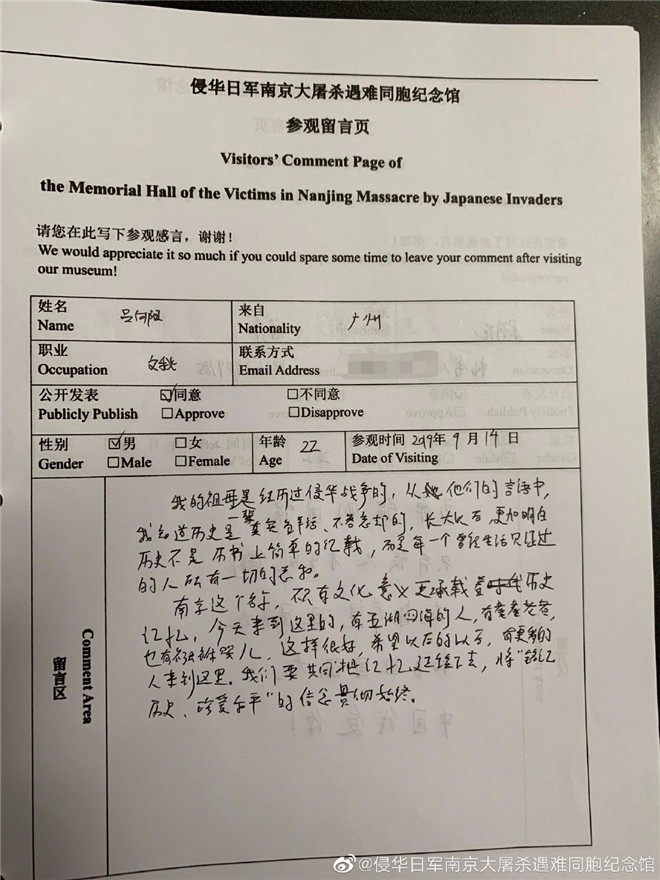 侵华日军南京大屠杀遇难同胞纪念馆
参观留言页
Visitors' Comment Page of
the Memorial Hall of the Victims in Nanjing Massacre by Japanese Invaders
请您在此写下参观感言，谢谢！
We would appreciate it so much if you could spare some time to leave your comment after visiting
our museum!
姓名 来自
Name 吕向阳 Nationality 广州
职业 联系方式
Occupation Email Address
公开发表 ☑同意 □不同意
Publicly Publish □Approve □Disapprove
性别 ☑男 □女 年龄 参观时间 2019年9月14日
Gender □Male □Female Age 22 Date of Visiting
留言区 Comment Area
我的祖母是经历过侵华战争的，从她他们的言语中，
我知道历史是真实、不容忘却的，长大以后更加明白
历史不是历书上简单的记载，而是每一个曾经生活见证过
的人所有一切的总和。
南京这个名字，不只有文化意义更承载历史
记忆，今天来到这里的，有五湖四海的人，有耄耋老爸，
也有孩儿，这样很好，希望以后的以后，有更多的
人来到这里。我们要共同把记忆延续下去，将“铭记
历史、珍爱和平”的信念贯彻始终。
@侵华日军南京大屠杀遇难同胞纪念馆